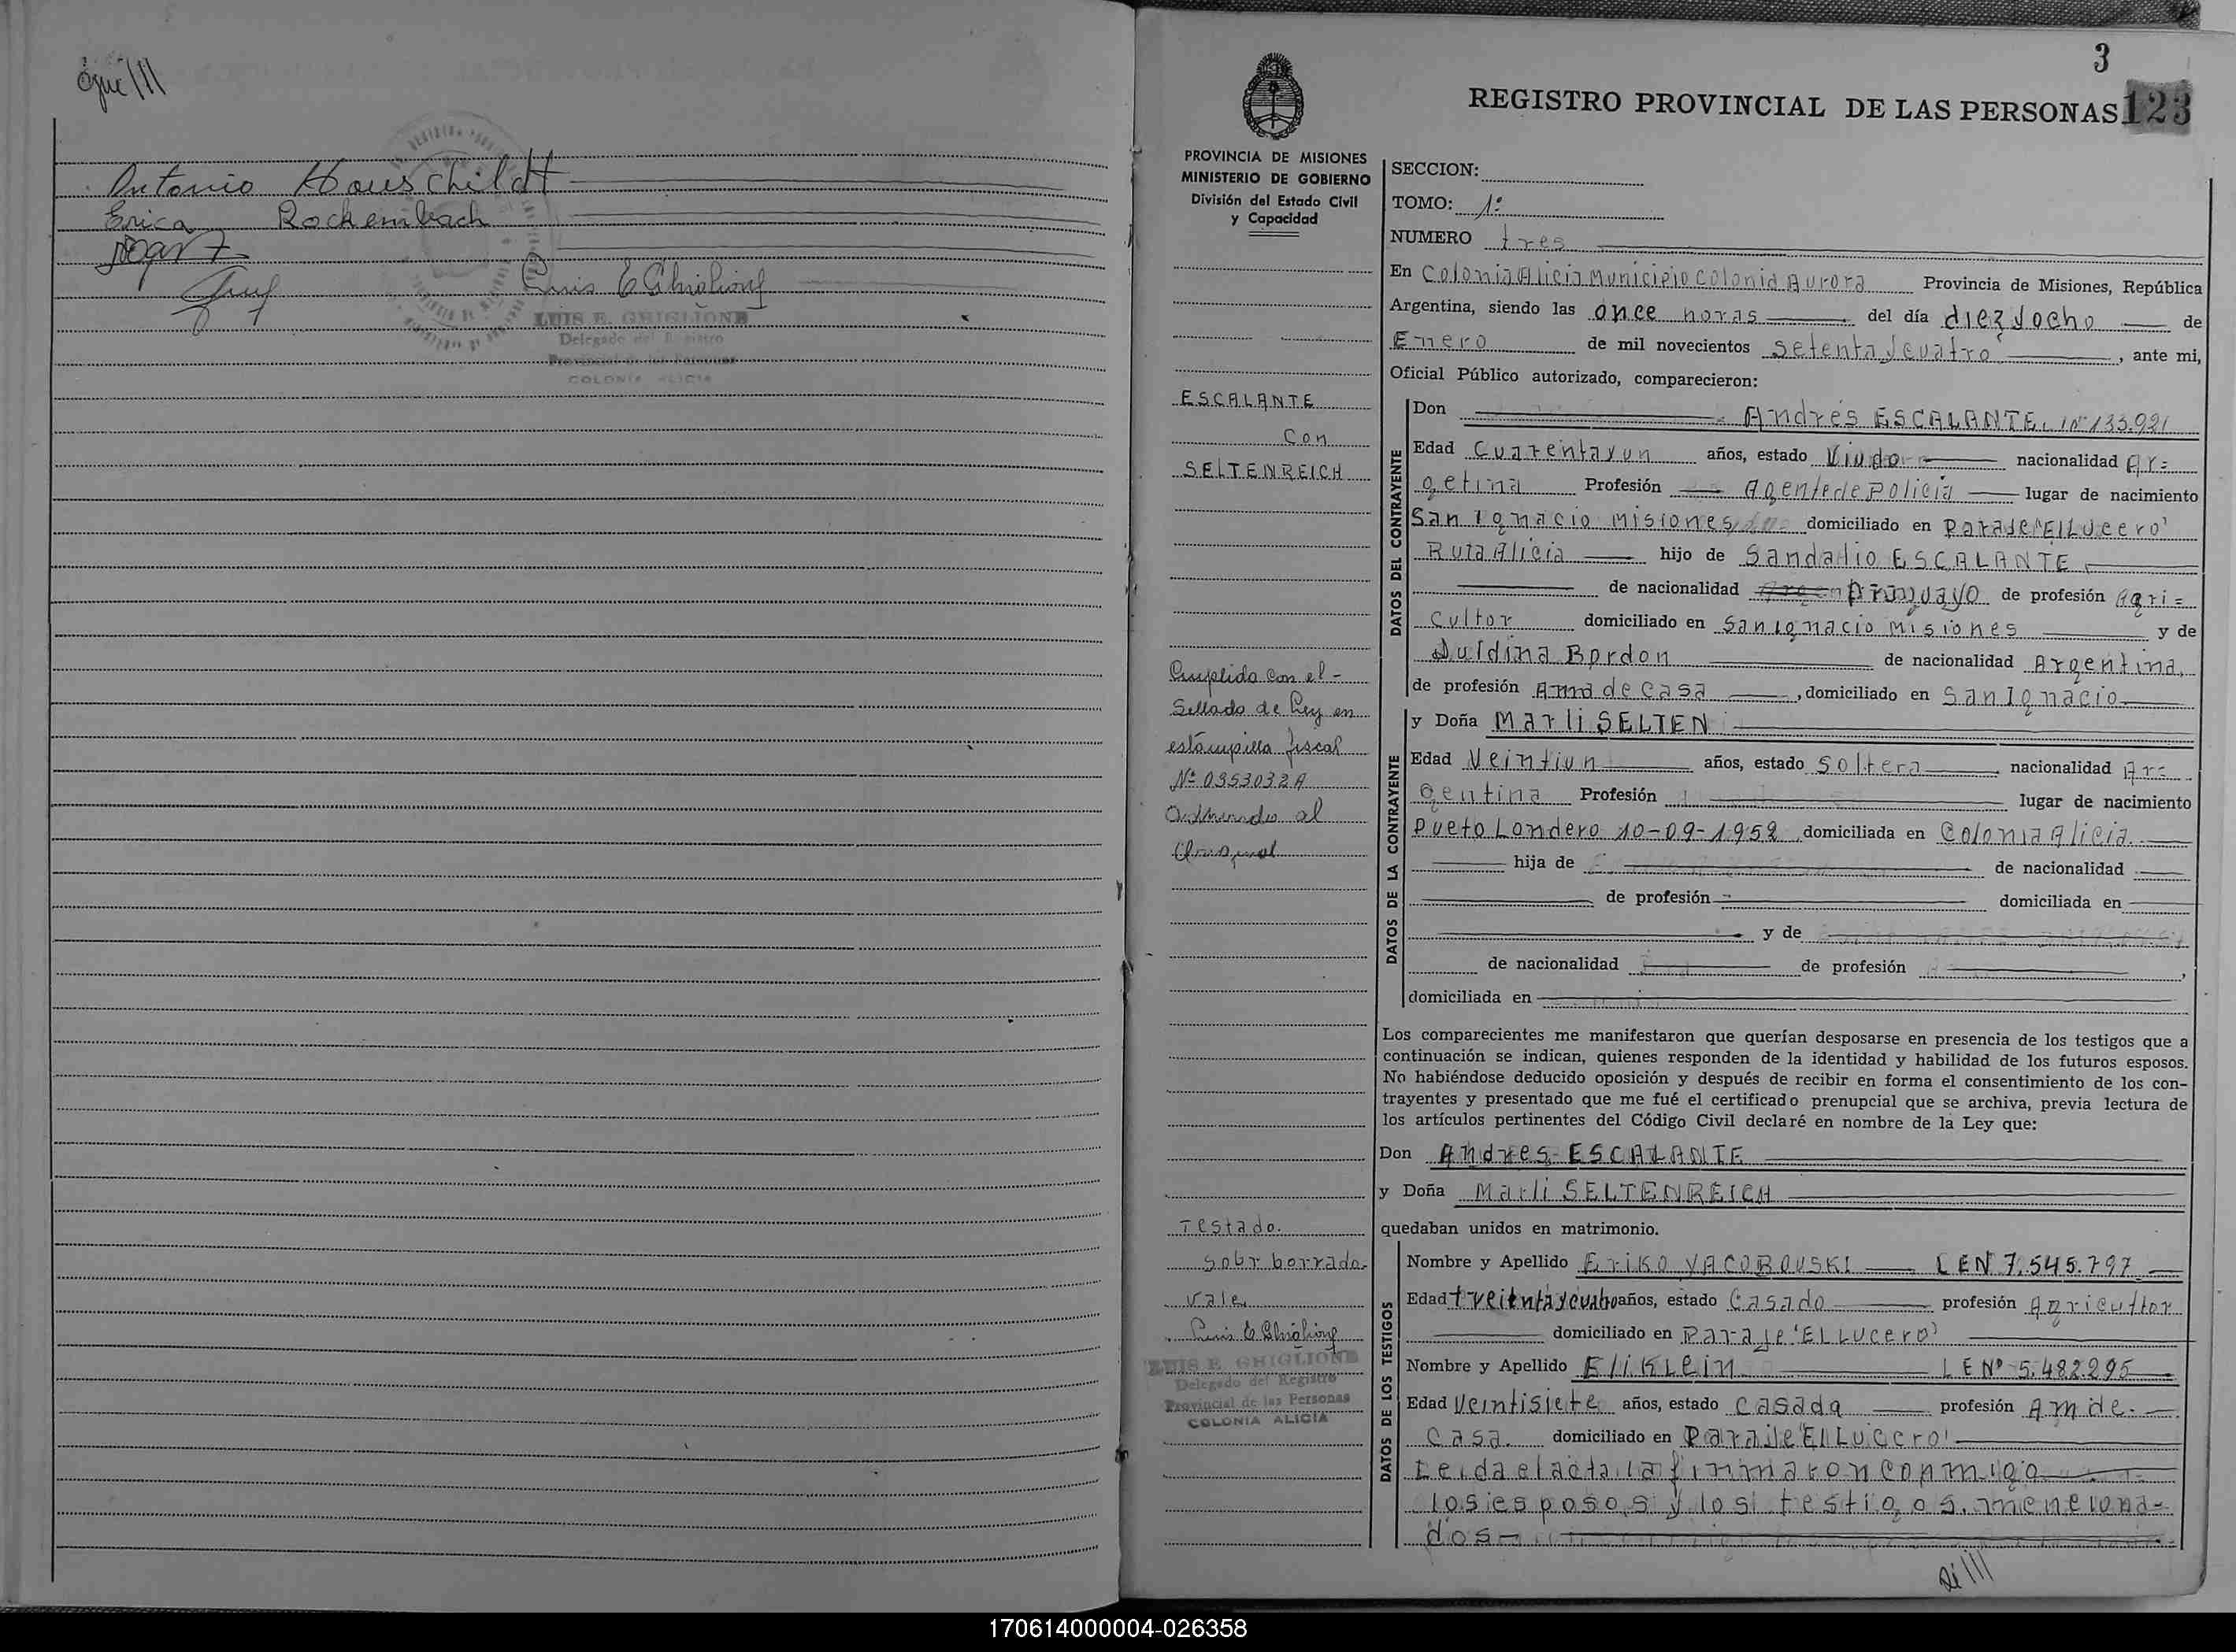 Antonio Hauschildt
Erica Rockembach
Luis E Ghiglione
LUIS E. GHIGLIONE
Delegado del Registro
Provincial de las Personas
COLONIA ALICIA
3
REGISTRO PROVINCIAL DE LAS PERSONAS 123
PROVINCIA DE MISIONES
MINISTERIO DE GOBIERNO
División del Estado Civil
y Capacidad
ESCALANTE
Con
SELTENREICH
Cumplido con el-
Sellado de Ley en
estampilla fiscal
Nº 0353032A
al
Original
Testado.
Sobr borrado.
vale
Luis E Ghiglione
LUIS E. GHIGLIONE
Delegado del Registro
Provincial de las Personas
COLONIA ALICIA
SECCION:
TOMO: 1º
NUMERO tres
En Colonia Alicia Municipio Colonia Aurora Provincia de Misiones, República
Argentina, siendo las once horas del día diez y ocho de
Enero de mil novecientos setenta y cuatro, ante mi,
Oficial Público autorizado, comparecieron:
DATOS DEL CONTRAYENTE
Don Andrés ESCALANTE. 133.921
Edad Cuarentayun años, estado Viudo nacionalidad Ar=
getina Profesión Agente de Policia lugar de nacimiento
San Ignacio Misiones domiciliado en Paraje 'El Lucero'
Ruta Alicia hijo de Sandalio ESCALANTE
de nacionalidad de profesión Agri=
cultor domiciliado en San Ignacio Misiones y de
Duldina Bordon de nacionalidad Argentina.
de profesión Ama de casa, domiciliado en San Ignacio
DATOS DE LA CONTRAYENTE
y Doña Marli SELTEN
Edad Veintiun años, estado Soltera nacionalidad Ar=
gentina Profesión lugar de nacimiento
Pueto Londero 10-09-1952 domiciliada en Colonia Alicia.
hija de de nacionalidad
de profesión domiciliada en
y de
de nacionalidad de profesión ,
domiciliada en
Los comparecientes me manifestaron que querían desposarse en presencia de los testigos que a
continuación se indican, quienes responden de la identidad y habilidad de los futuros esposos.
No habiéndose deducido oposición y después de recibir en forma el consentimiento de los con-
trayentes y presentado que me fué el certificado prenupcial que se archiva, previa lectura de
los artículos pertinentes del Código Civil declaré en nombre de la Ley que:
Don Andres ESCALANTE
y Doña Marli SELTENREICH
quedaban unidos en matrimonio.
DATOS DE LOS TESTIGOS
Nombre y Apellido Eriko YACOBOUSKI LEN 7.545.797
Edad treitntaycuatro años, estado Casado profesión Agricultor
domiciliado en Paraje 'El Lucero'
Nombre y Apellido Eli KLein L E Nº 5.482.295
Edad Veintisiete años, estado Casada profesión Am de.
Casa. domiciliado en Paraje 'El Lucero'
Leida el acta la firmaron conmigo
los esposos y los testigos. menciona-
dos-
170614000004-026358